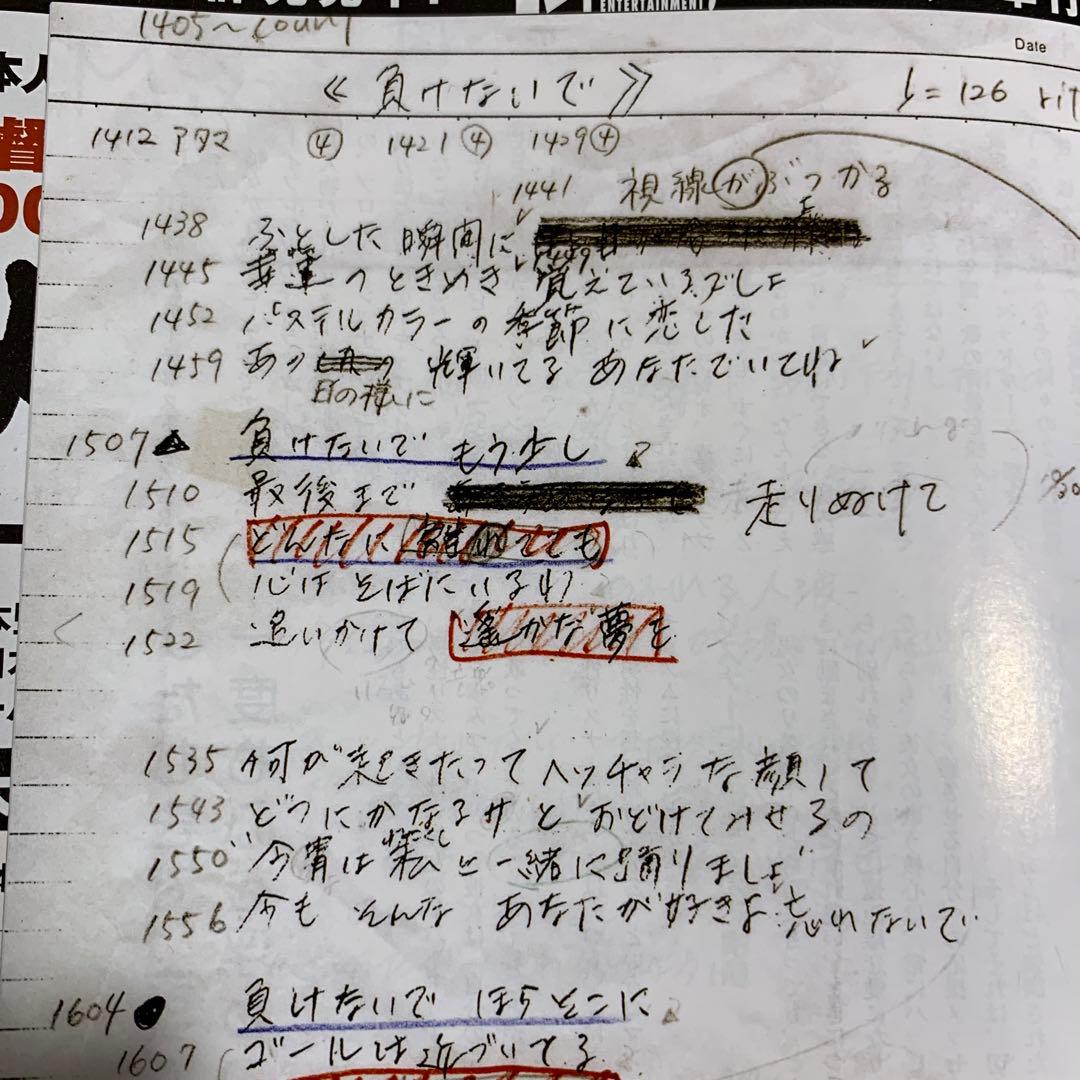 ENTERTAINMENT
1405～count
Date
≪負けないで≫ ♩=126 rit
1412 アタマ ④ 1421④ 1429④
1441 視線がぶつかる
1438 ふとした瞬間に
1445 幸運のときめき 1449 覚えているでしょ
1452 パステルカラーの季節に恋した
1459 あの 輝いてる あなたでいてね
日の様に
1507 負けないで もう少し
1510 最後まで 走りぬけて
1515 どんなに離れてても
1519 心は そばにいるわ
1522 追いかけて 遥かな夢を
1535 何が起きたって ヘッチャラな顔して
1543 どうにかなるサ と おどけてみせるの
わたくし
1550 “今宵は 私と一緒に踊りましょ”
1556 今も そんな あなたが好きよ 忘れないで
1604 負けないで ほらそこに
1607 ゴールは近づいてる